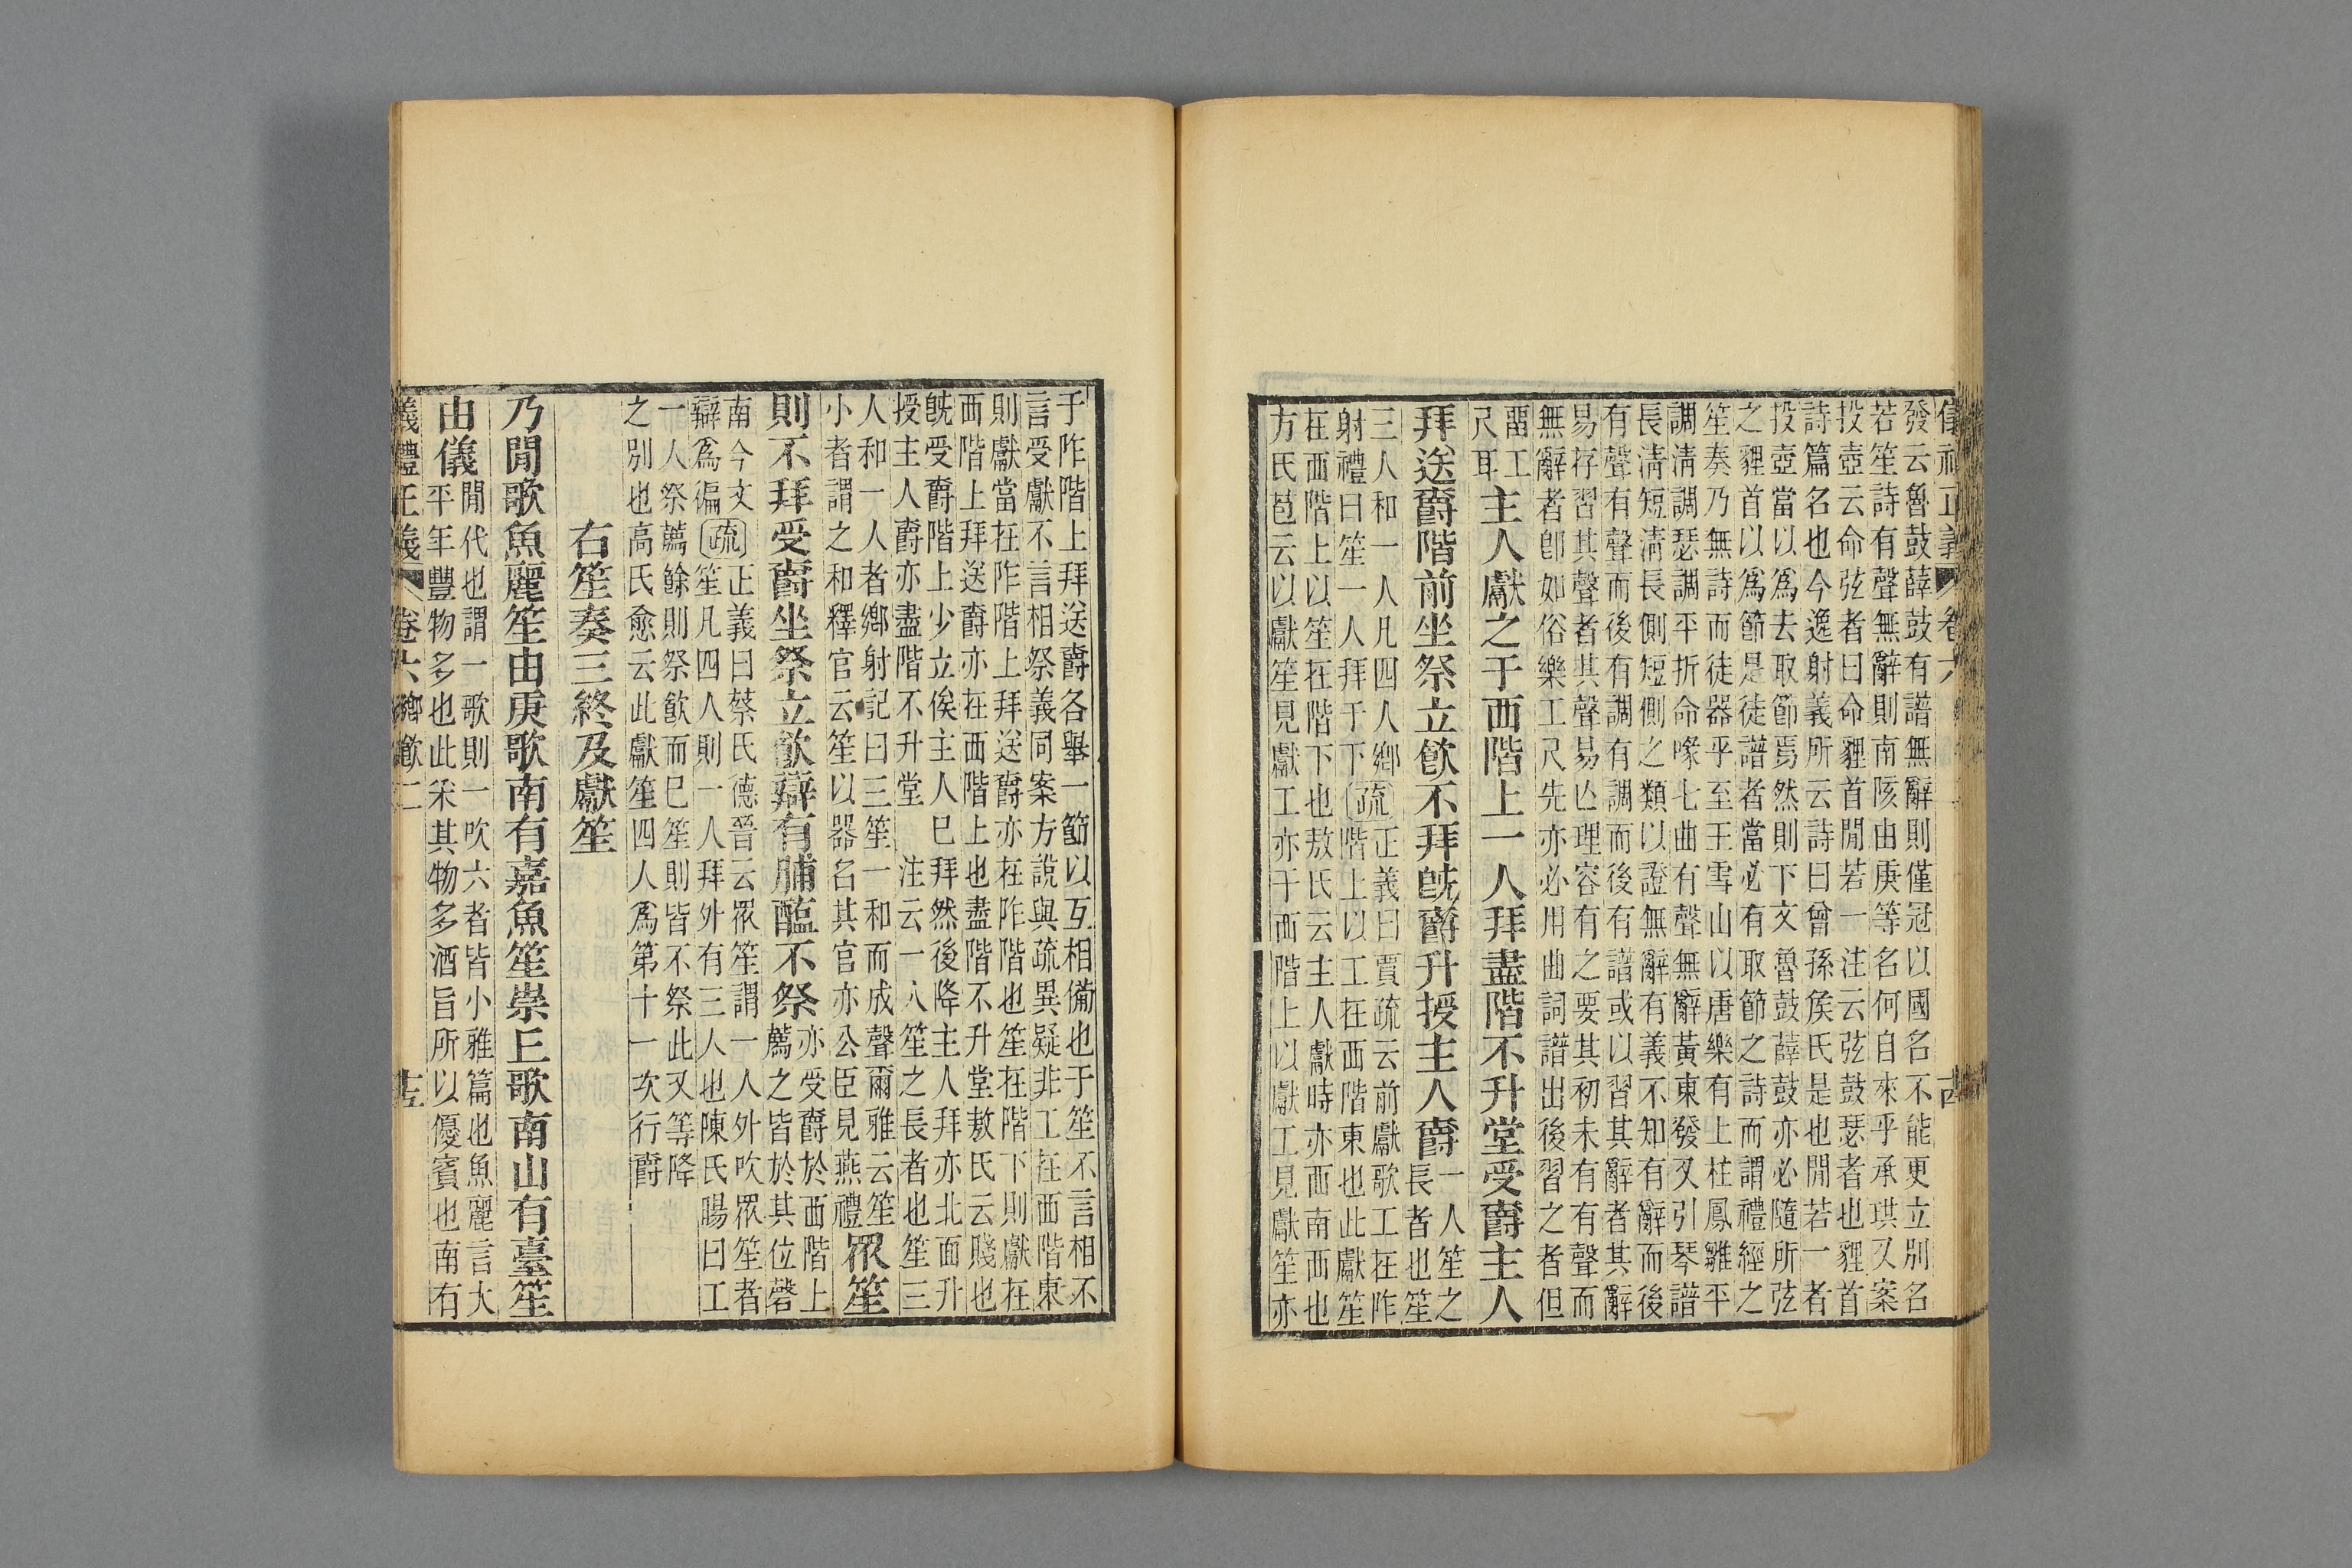 儀禮正義 卷六 古
發云魯鼓薛鼓有譜無辭則僅冠以國名不能更立別名
若笙詩有聲無辭則南陔由庚等名何自來乎承珙又案
投壺云命弦者曰命貍首閒若一注云弦鼓瑟者也貍首
詩篇名也今逸射義所云詩曰曾孫侯氏是也閒若一者
投壺當以爲去取節焉然則下文魯鼓薛鼓亦必隨所弦
之貍首以爲節是徒譜者當必有取節之詩而謂禮經之
笙奏乃無詩而徒器乎至王雪山以唐樂有上柱鳳雛平
調淸調瑟調平折命喙七曲有聲無辭黃東發又引琴譜
長淸短淸長側短側之類以證無辭有義不知有辭而後
有聲有聲而後有調有調而後有譜或以習其辭者其辭
易存習其聲者其聲易亾理容有之要其初未有有聲而
無辭者卽如俗樂工尺先亦必用曲詞譜出後習之者但
畱工
尺耳
主人獻之于西階上一人拜盡階不升堂受爵主人
拜送爵階前坐祭立飮不拜旣爵升授主人爵
一人笙之
長者也笙
三人和一人凡四人鄕
射禮曰笙一人拜于下
疏
正義曰賈疏云前獻歌工在阼
階上以工在西階東也此獻笙
在西階上以笙在階下也敖氏云主人獻時亦西南西也
方氏苞云以獻笙見獻工亦于西階上以獻工見獻笙亦
于阼階上拜送爵各舉一節以互相備也于笙不言相不
言受獻不言相祭義同案方說與疏異疑非工在西階東
則獻當在阼階上拜送爵亦在阼階也笙在階下則獻在
西階上拜送爵亦在西階上也盡階不升堂敖氏云賤也
旣受爵階上少立俟主人已拜然後降主人拜亦北面升
授主人爵亦盡階不升堂　注云一人笙之長者也笙三
人和一人者鄕射記曰三笙一和而成聲爾雅云笙
小者謂之和釋官云笙以器名其官亦公臣見燕禮
眾笙
則不拜受爵坐祭立飮辯有脯醢不祭
亦受爵於西階上
薦之皆於其位磬
南今文
辯爲徧
疏
正義曰蔡氏德晉云眾笙謂一人外吹眾笙者
笙凡四人則一人拜外有三人也陳氏暘曰工
一人祭薦餘則祭飮而已笙則皆不祭此又等降
之別也高氏愈云此獻笙四人爲第十一次行爵
右笙奏三終及獻笙
乃閒歌魚麗笙由庚歌南有嘉魚笙崇丘歌南山有臺笙
由儀
閒代也謂一歌則一吹六者皆小雅篇也魚麗言大
平年豐物多也此采其物多酒旨所以優賓也南有
儀禮正義 卷六 鄕飮二 十五